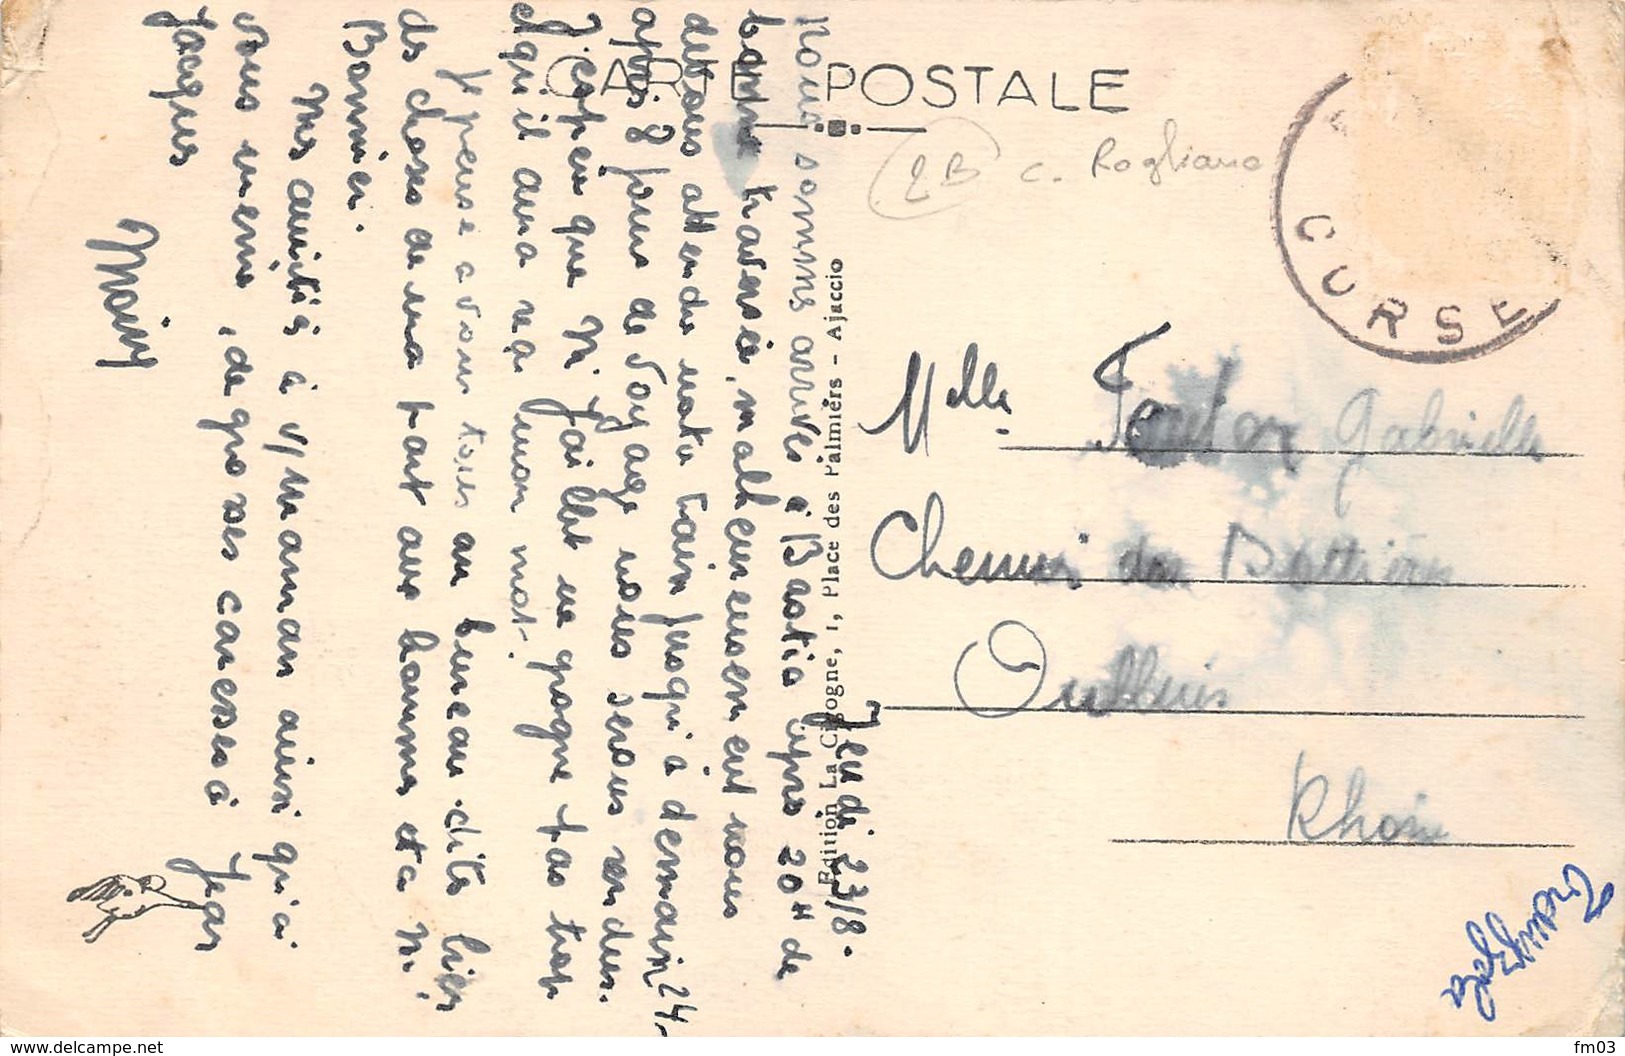 CARTE POSTALE
2B c. Rogliano
CORSE
Edition La Cigogne, 1, Place des Palmiers - Ajaccio
Jeudi 23/8.
Nous sommes arrivés à Bastia après 20H de
bonne traversée, malheureusement nous
devons attendre notre train jusqu'à demain 24.
après 8 jours de voyage nous serons rendus.
J'espère que M. Jaillet ne grogne pas trop
et qu'il aura reçu mon mot.
Je pense à vous tous au bureau dites bien
des choses de ma part aux hommes et à M.
Bonnier.
Mes amitiés à v/maman ainsi qu'à
vous même, de grosses caresses à Jean
Jacques
Melle Gabrielle
Chemin des
Oullins
Rhône
fm03